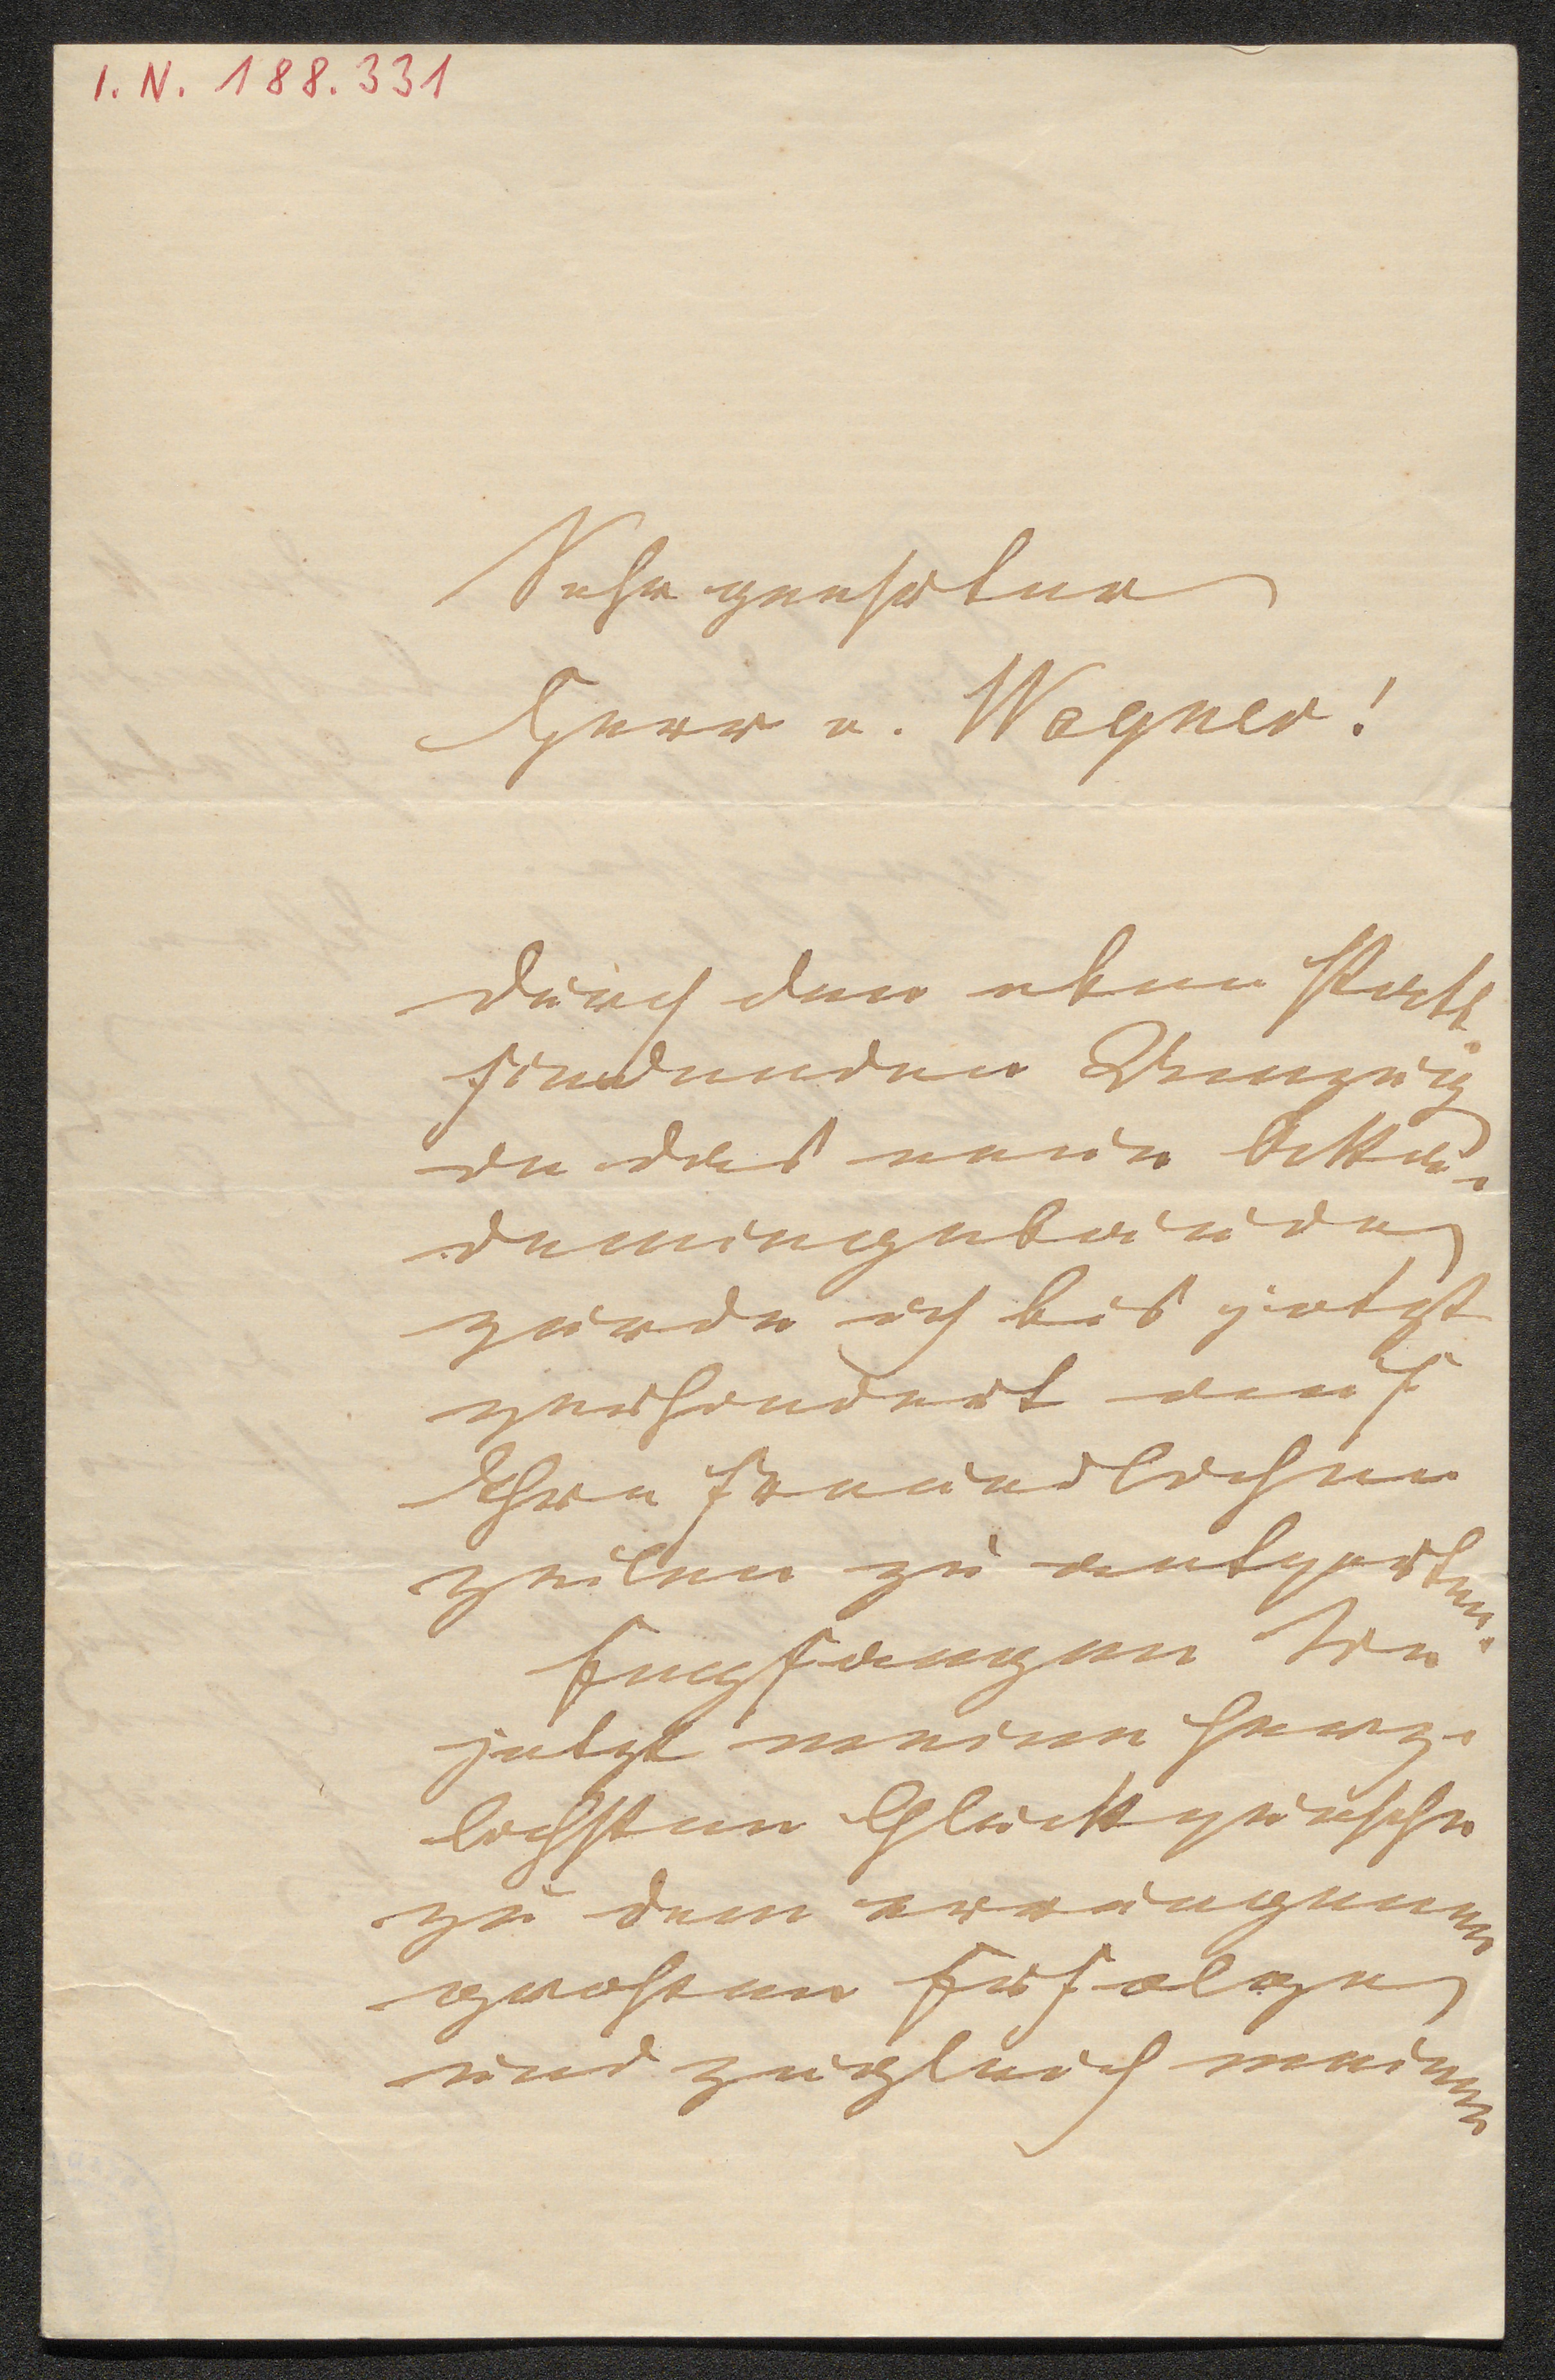 I. N. 188.331
Sehr geehrter
Herr v. Wagner!
durch den eben statt
findenden Umzug
in das neue Akka-
demiegebäude
wurde ich bis jetzt
verhindert auf
Ihre freundlichen
Zeilen zu antworten.
Empfangen Sie
jetzt meine herz-
lichsten Glückwünsche
zu dem errungenen
großen Erfolge
und zugleich meinen